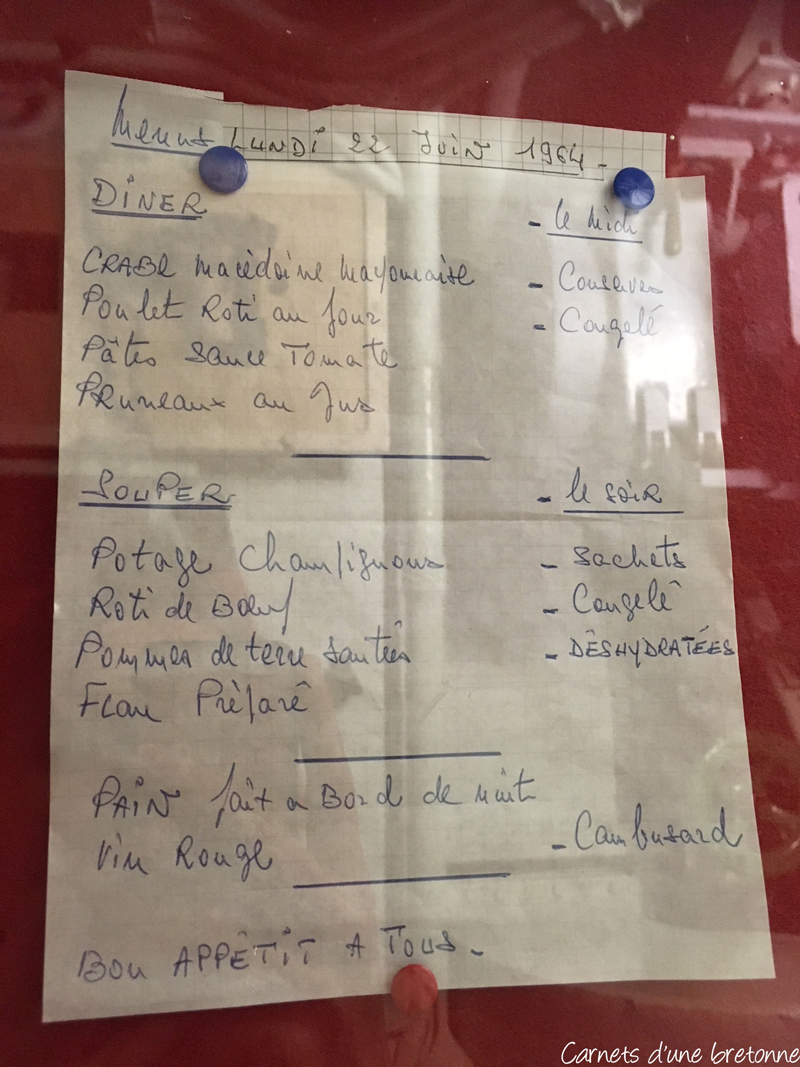 Menus LUNDI 22 Juin 1964-
DINER - le Midi
CRABE Macédoine Mayonnaise - Conserves
Poulet Roti au four - Congelé
Pâtes Sauce Tomate
PRuneaux au Jus
SOUPER - le SOIR
Potage Champignons - Sachets
Roti de Boeuf - Congelé
Pommes de terre Sautées - DÉSHYDRATÉES
Flan Préparé
PAIN fait a Bord de nuit
Vin Rouge - Cambusard
BON APPÉTIT A TOUS-
Carnets d'une bretonne